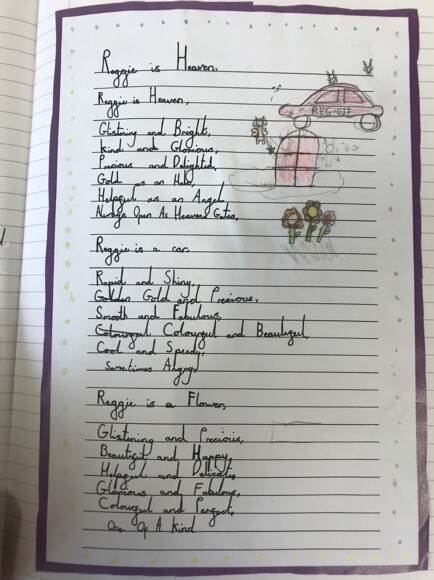 Reggie is Heaven.
Reggie is Heaven,
REG-GIE
Glistning and Bright,
Kind and Glorious,
Precious and Delighted,
Gold as an Halo,
Helpful as an Angel,
Always Open As Heavens Gates.
Reggie is a car,
Rapid and Shiny,
Golden Gold and Precious,
Smooth and Fabulous,
Colourful Colourful and Beautiful,
Cool and Speedy,
Sometimes Angry.
Reggie is a Flower,
Glistening and Precious,
Beautiful and Happy,
Helpful and Delicate,
Glorious and Fabulous,
Colourful and Perfect,
One Of A Kind